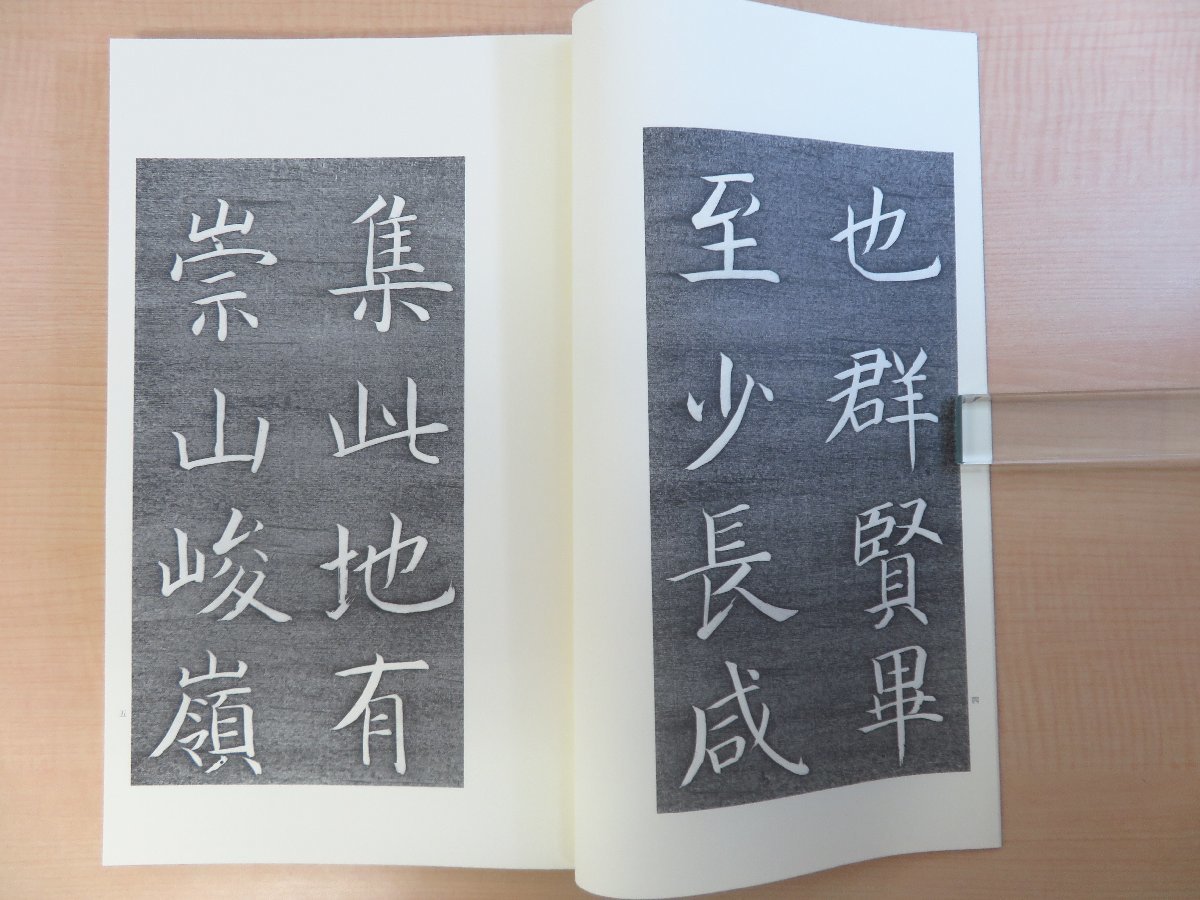 也群賢畢
至少長咸
四
集此地有
崇山峻嶺
五